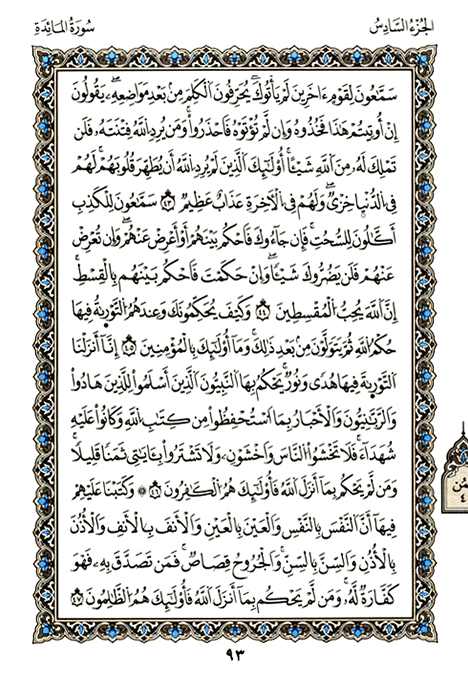 الجُزْءُ السَّادِسُ
سُورَةُ المَائِدَةِ
سَمَّٰعُونَ لِقَوْمٍ ءَاخَرِينَ لَمْ يَأْتُوكَ يُحَرِّفُونَ الْكَلِمَ مِنْ بَعْدِ مَوَاضِعِهِۦ يَقُولُونَ
إِنْ أُوتِيتُمْ هَٰذَا فَخُذُوهُ وَإِن لَّمْ تُؤْتَوْهُ فَاحْذَرُواْ وَمَن يُرِدِ اللَّهُ فِتْنَتَهُۥ فَلَن
تَمْلِكَ لَهُۥ مِنَ اللَّهِ شَيْـًٔا أُوْلَٰٓئِكَ الَّذِينَ لَمْ يُرِدِ اللَّهُ أَن يُطَهِّرَ قُلُوبَهُمْ لَهُمْ
فِي الدُّنْيَا خِزْيٌ وَلَهُمْ فِي الْأٓخِرَةِ عَذَابٌ عَظِيمٌ ٤٣ سَمَّٰعُونَ لِلْكَذِبِ
أَكَّٰلُونَ لِلسُّحُتِ فَإِن جَآءُوكَ فَاحْكُم بَيْنَهُمْ أَوْ أَعْرِضْ عَنْهُمْ وَإِن تُعْرِضْ
عَنْهُمْ فَلَن يَضُرُّوكَ شَيْـًٔا وَإِنْ حَكَمْتَ فَاحْكُم بَيْنَهُم بِالْقِسْطِ
إِنَّ اللَّهَ يُحِبُّ الْمُقْسِطِينَ ٤٤ وَكَيْفَ يُحَكِّمُونَكَ وَعِندَهُمُ التَّوْرَىٰةُ فِيهَا
حُكْمُ اللَّهِ ثُمَّ يَتَوَلَّوْنَ مِنْ بَعْدِ ذَٰلِكَ وَمَآ أُوْلَٰٓئِكَ بِالْمُؤْمِنِينَ ٤٥ إِنَّآ أَنزَلْنَا
التَّوْرَىٰةَ فِيهَا هُدًى وَنُورٌ يَحْكُمُ بِهَا النَّبِيُّونَ الَّذِينَ أَسْلَمُواْ لِلَّذِينَ هَادُواْ
وَالرَّبَّٰنِيُّونَ وَالْأَحْبَارُ بِمَا اسْتُحْفِظُواْ مِن كِتَٰبِ اللَّهِ وَكَانُواْ عَلَيْهِ
شُهَدَآءَ فَلَا تَخْشَوُاْ النَّاسَ وَاخْشَوْنِ وَلَا تَشْتَرُواْ بِـَٔايَٰتِي ثَمَنًا قَلِيلًا
وَمَن لَّمْ يَحْكُم بِمَآ أَنزَلَ اللَّهُ فَأُوْلَٰٓئِكَ هُمُ الْكَٰفِرُونَ ٤٦ وَكَتَبْنَا عَلَيْهِمْ
فِيهَآ أَنَّ النَّفْسَ بِالنَّفْسِ وَالْعَيْنَ بِالْعَيْنِ وَالْأَنفَ بِالْأَنفِ وَالْأُذُنَ
بِالْأُذُنِ وَالسِّنَّ بِالسِّنِّ وَالْجُرُوحُ قِصَاصٌ فَمَن تَصَدَّقَ بِهِۦ فَهْوَ
كَفَّارَةٌ لَّهُۥ وَمَن لَّمْ يَحْكُم بِمَآ أَنزَلَ اللَّهُ فَأُوْلَٰٓئِكَ هُمُ الظَّٰلِمُونَ ٤٧
٩٣